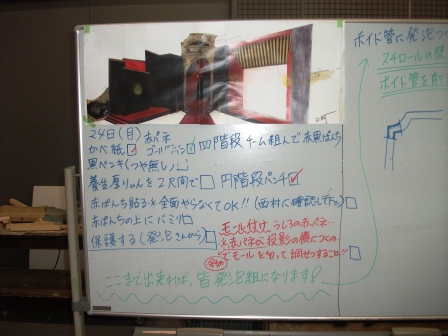 24日(日)赤パネ
かべ紙 ゴールデンシン 四階段 チーム組んで赤黒ぱんち
黒ペンキ(つや無し)
養生厚りゃんを2尺間で 円階段パンチ
赤ぱんち貼る※全面やらなくてOK!!(西村に確認して下さい)
赤ぱんちの上にバミリ
保護する(発泡さんから)
モール付け うしろの赤パネ
※赤パネが投影の横につくの
でモールを切って調せつすること!!
ここまで出来れば、皆発泡組になります!
ボイド管に発泡つ
スチロールの壁
ボイド管を削